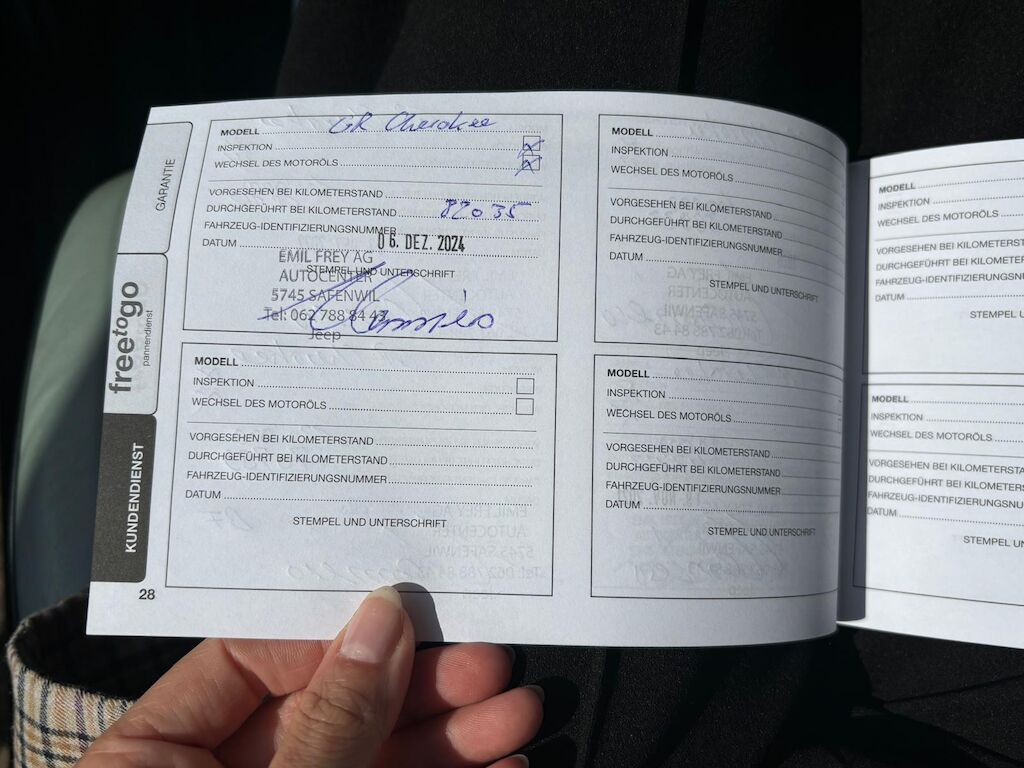 GARANTIE
freetogo
pannendienst
KUNDENDIENST
28
MODELL GR Cherokee
INSPEKTION
WECHSEL DES MOTORÖLS
VORGESEHEN BEI KILOMETERSTAND
DURCHGEFÜHRT BEI KILOMETERSTAND 82035
FAHRZEUG-IDENTIFIZIERUNGSNUMMER
DATUM 06. DEZ. 2024
STEMPEL UND UNTERSCHRIFT
EMIL FREY AG
AUTOCENTER
5745 SAFENWIL
Tel: 062 788 84 43
Jeep
MODELL
INSPEKTION
WECHSEL DES MOTORÖLS
VORGESEHEN BEI KILOMETERSTAND
DURCHGEFÜHRT BEI KILOMETERSTAND
FAHRZEUG-IDENTIFIZIERUNGSNUMMER
DATUM
STEMPEL UND UNTERSCHRIFT
MODELL
INSPEKTION
WECHSEL DES MOTORÖLS
VORGESEHEN BEI KILOMETERSTAND
DURCHGEFÜHRT BEI KILOMETERSTAND
FAHRZEUG-IDENTIFIZIERUNGSNUMMER
DATUM
STEMPEL UND UNTERSCHRIFT
MODELL
INSPEKTION
WECHSEL DES MOTORÖLS
VORGESEHEN BEI KILOMETERSTAND
DURCHGEFÜHRT BEI KILOMETERSTAND
FAHRZEUG-IDENTIFIZIERUNGSNUMMER
DATUM
STEMPEL UND UNTERSCHRIFT
MODELL
INSPEKTION
WECHSEL DES MOTORÖLS
VORGESEHEN BEI KILOMETERST
DURCHGEFÜHRT BEI KILOMETERS
FAHRZEUG-IDENTIFIZIERUNGSN
DATUM
STEMPEL U
MODELL
INSPEKTION
WECHSEL DES MOTORÖLS
VORGESEHEN BEI KILOMETERSTA
DURCHGEFÜHRT BEI KILOMETERS
FAHRZEUG-IDENTIFIZIERUNGSNU
DATUM
STEMPEL UN